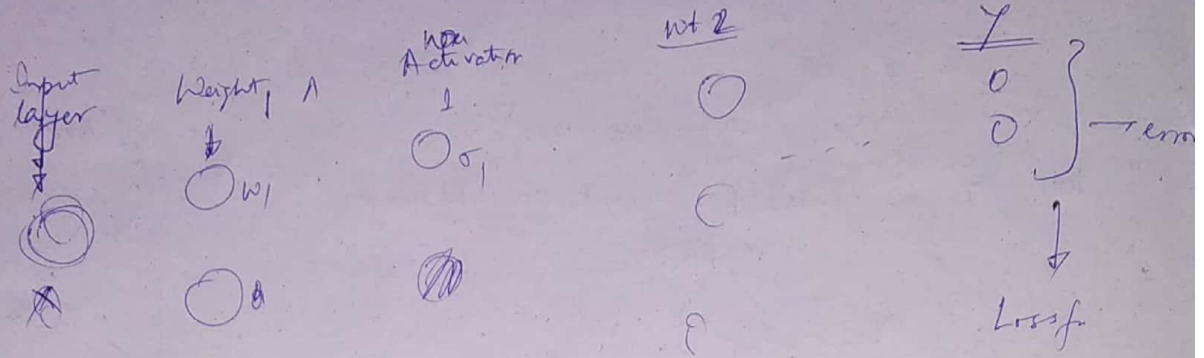 Input
layer
Weight1
w1
Activation
1
σ1
wt 2
Y
→ error
Loss fn